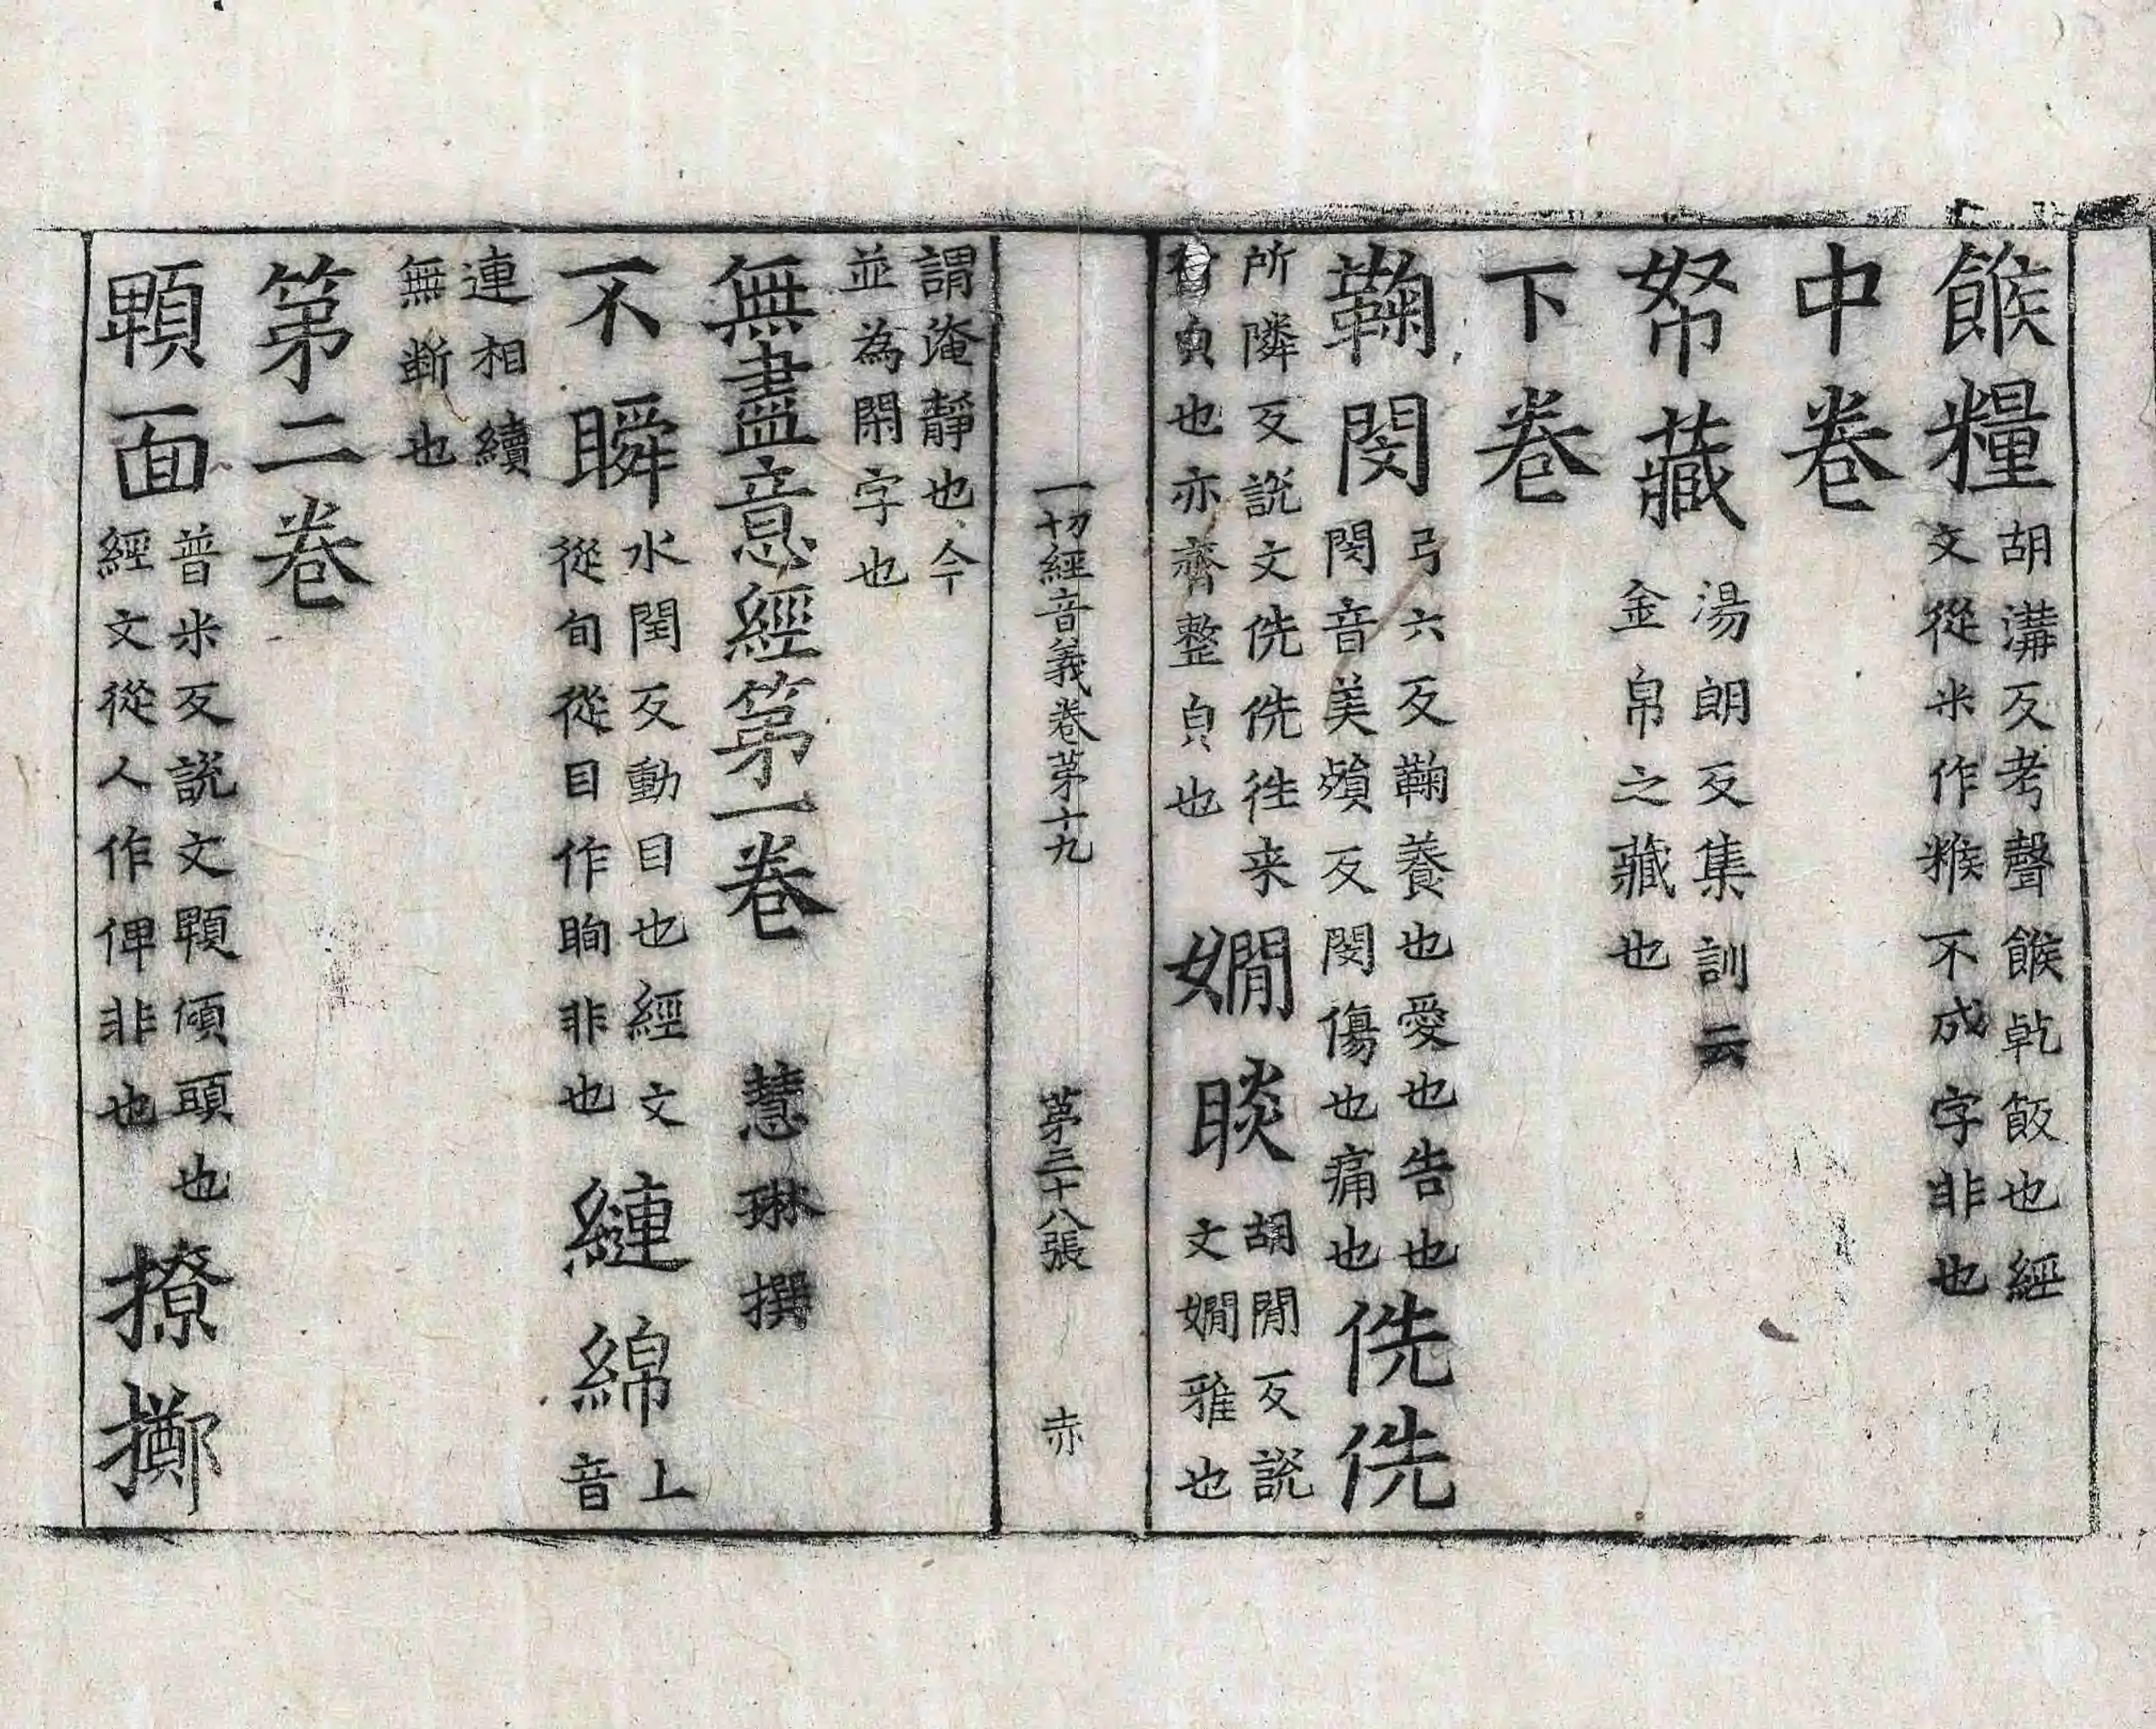 餱糧胡溝反考聲餱乹飯也經文從米作糇不成字非也
中卷
帑藏湯朗反集訓云金帛之藏也
下卷
鞠閔弓六反鞠養也愛也告也閔音美殞反閔傷也痛也侁侁
所隣反說文侁侁徃来皃也亦齊整皃也嫺睒胡閒反說文嫺雅也
一切經音義卷苐十九 苐三十八張 赤
謂淹靜也今並為閑字也
無盡意經第一卷 慧琳撰
不瞬水閏反動目也經文從旬從目作眴非也纏綿上音
連相續無斷也
第二卷
顐面普米反說文顐傾頭也經文從人作俾非也撩擲